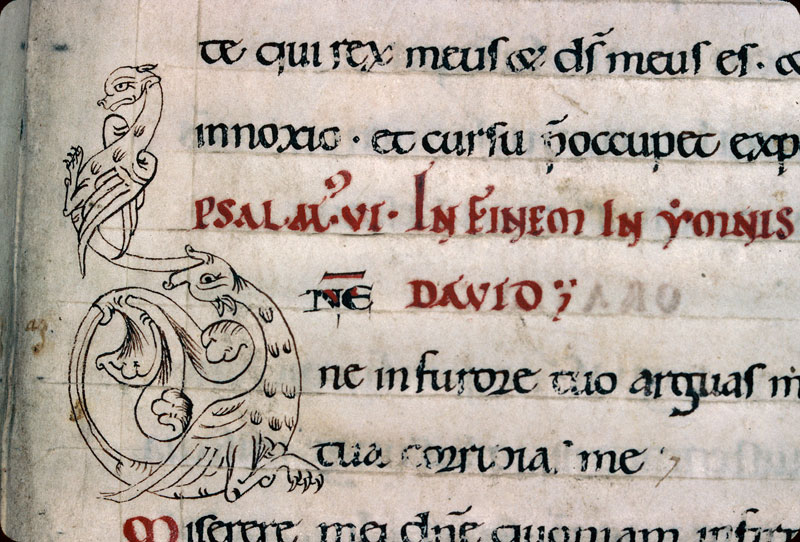 te qui rex meus & ds̄ meus es · &
innoxio · et cursu p̄occupet exp
PSALM᷒ · VI · IN FINEM IN YMNIS
NĒ DAVID
ne in furore tuo arguas m
tua corripia me
Miserere mei dn̄e quoniam infir